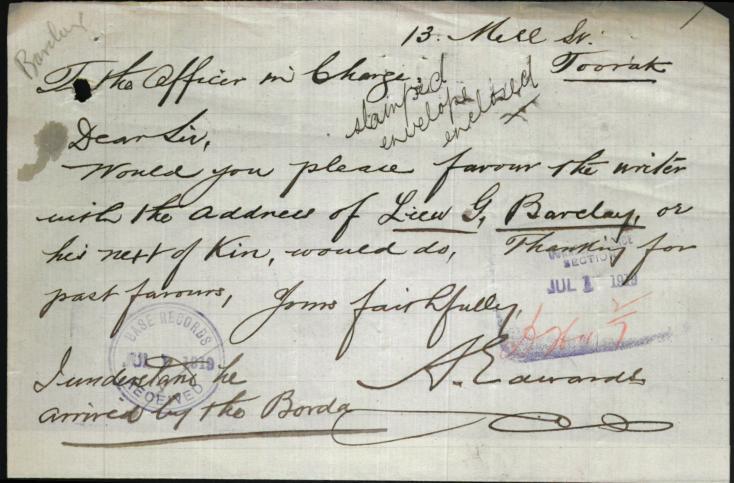 Barclay
13. Mell St.
Toorak
To the Officer in Charge.
stamped
envelope
enclosed
Dear Sir,
Would you please favour the writer
with the address of Lieu G, Barclay, or
his next of Kin, would do, Thanking for
past favours, Yours faithfully,
SECTION
JUL 1 1919
BASE RECORDS
JUL 1919
RECEIVED
A. Edwards
I understand he
arrived by the Borda